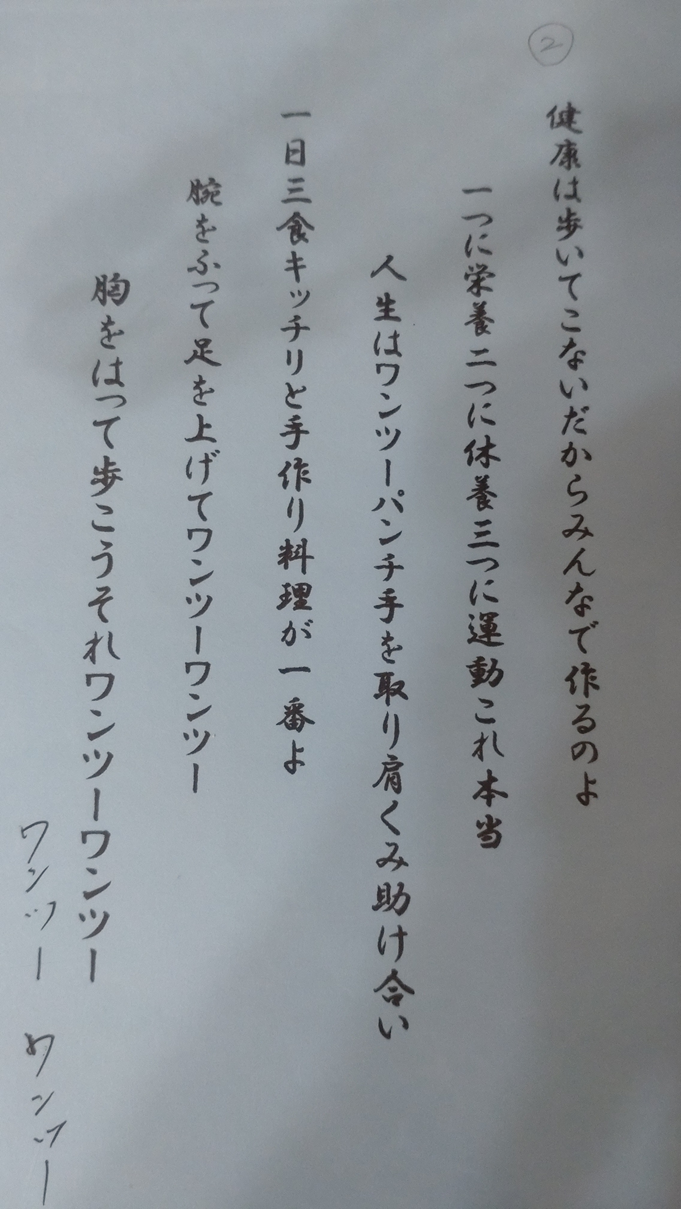 ②
健康は歩いてこないだからみんなで作るのよ
一つに栄養二つに休養三つに運動これ本当
人生はワンツーパンチ手を取り肩くみ助け合い
一日三食キッチリと手作り料理が一番よ
腕をふって足を上げてワンツーワンツー
胸をはって歩こうそれワンツーワンツー
ワンツー ワンツー